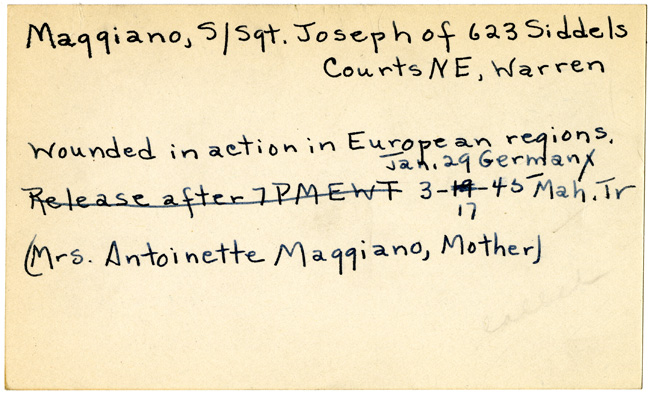 Maggiano, S/Sgt. Joseph of 623 Siddels
Courts NE, Warren
Wounded in action in European regions.
Jan. 29 Germany
Release after 7PMEWT 3-19-45 Mah. Tr
17
(Mrs. Antoinette Maggiano, Mother)